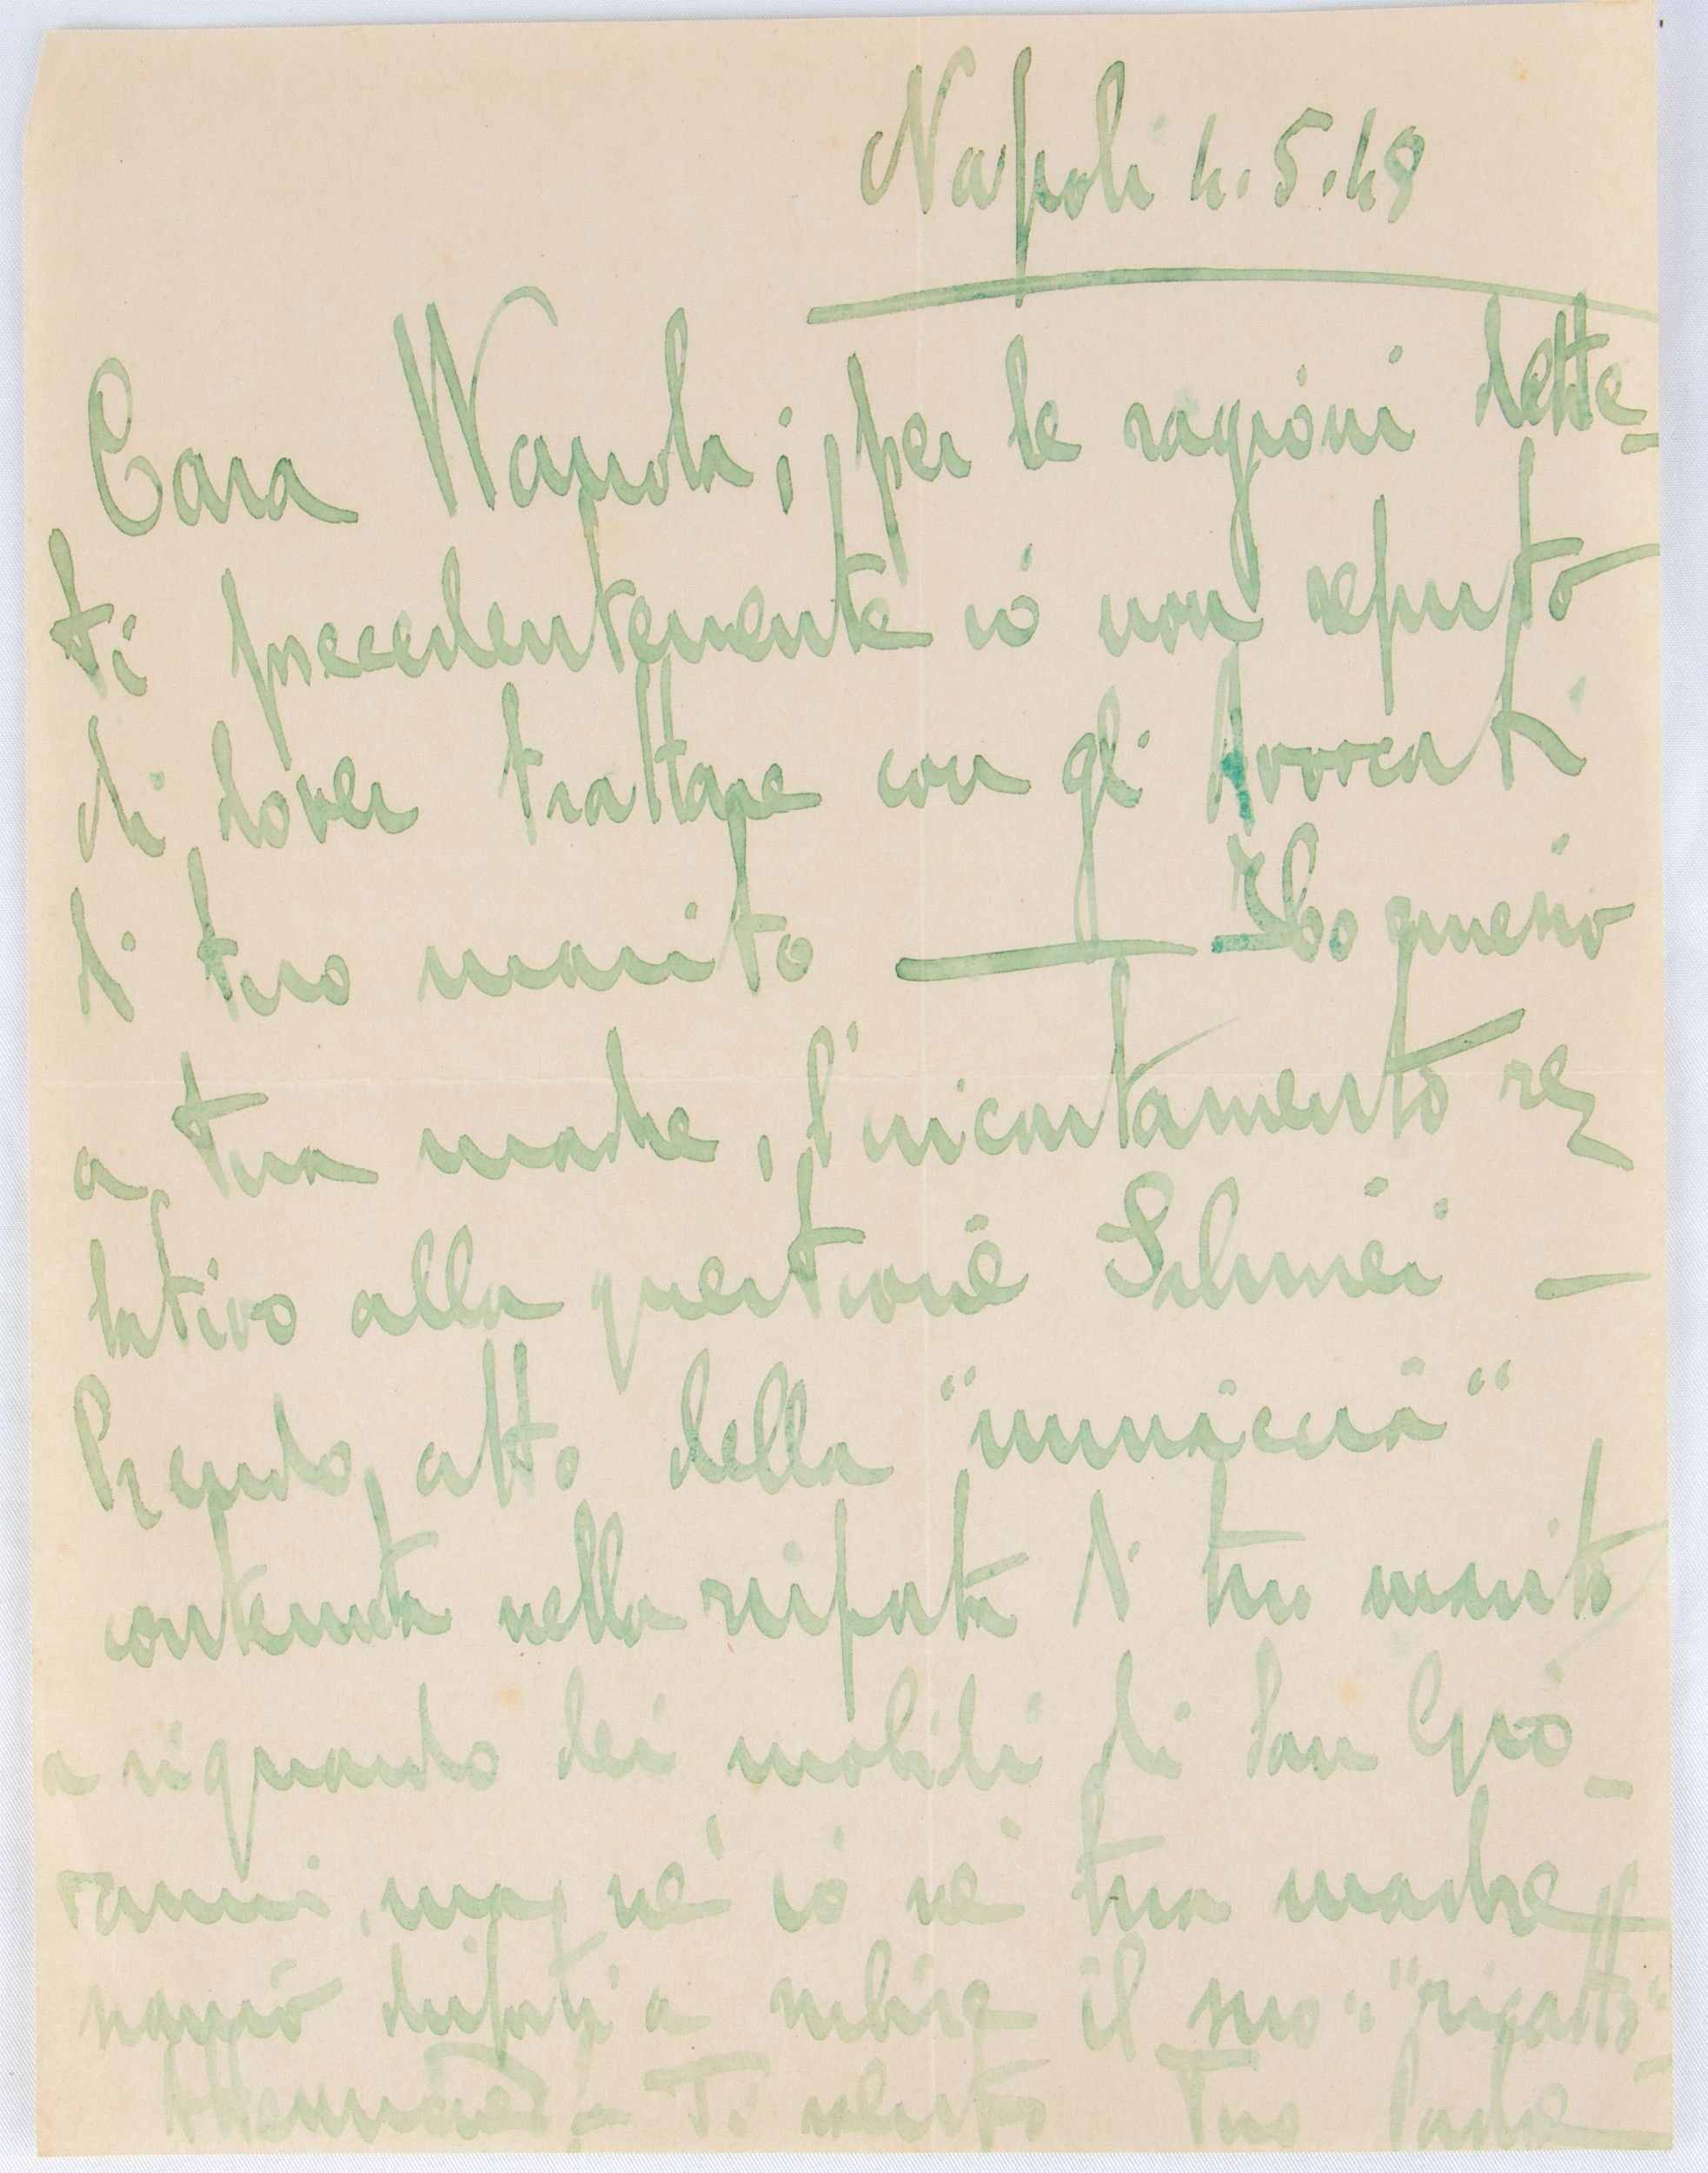 Napoli 4.5.48
Cara Wanda; per le ragioni dette-
ti precedentemente io non reputo
di dover trattare con gli Avvocati
di tuo marito —
a tua madre, l'incartamento re
lativo alla questione
Prendo atto della "minaccia"
contenuta nella risposta di tuo marito
a riguardo dei mobili di San Gio-
vanni, ma, né io né tua madre
siamo disposti a subire il suo: "ricatto"-
Ti saluto Tuo Padre